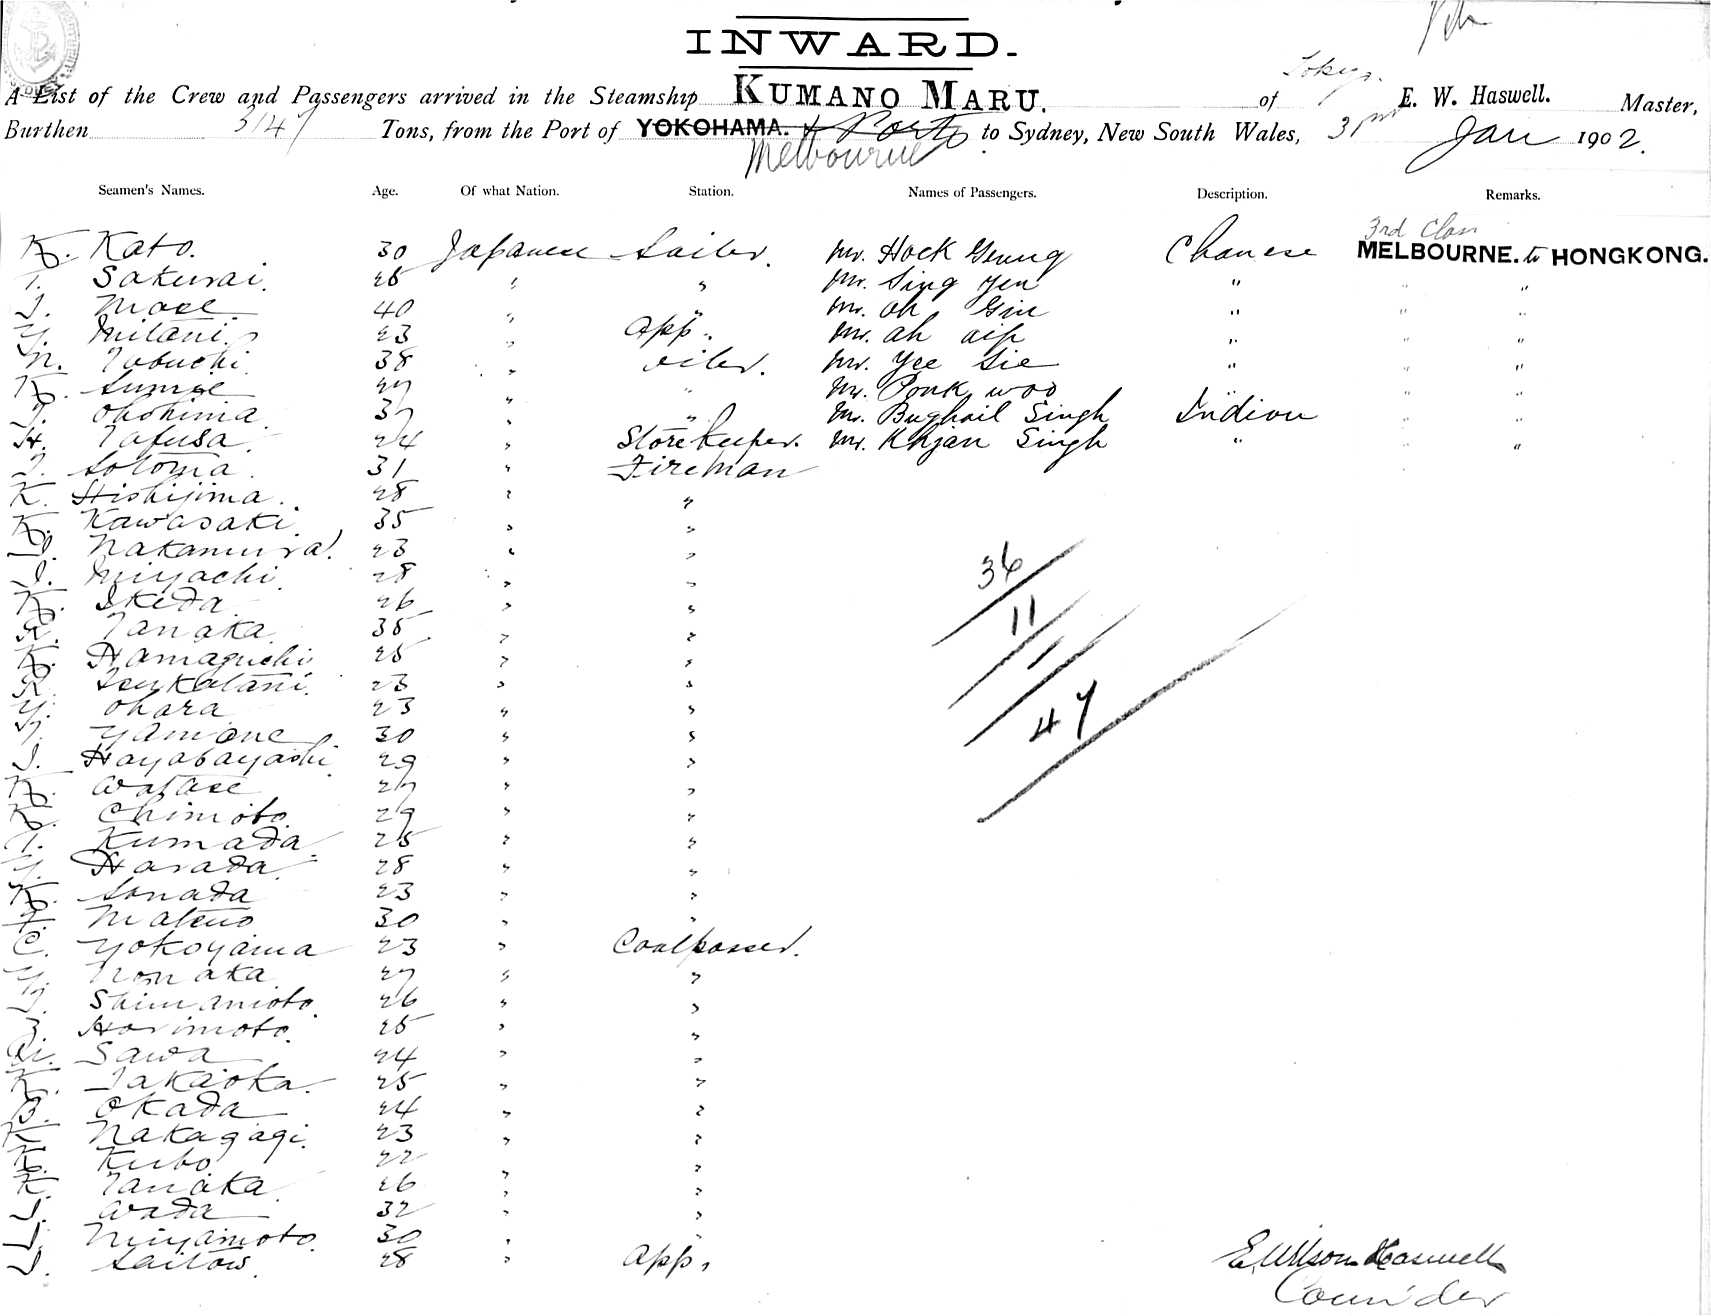 INWARD.
Tokyo.
A List of the Crew and Passengers arrived in the Steamship KUMANO MARU. of E. W. Haswell. Master,
Burthen 3147 Tons, from the Port of YOKOHAMA. & Ports to Sydney, New South Wales, 31st Jan 1902.
Melbourne
Seamen's Names. Age. Of what Nation. Station. Names of Passengers. Description. Remarks.
3rd Class
K. Kato. 30 Japanese Sailor. Mr. Hock Geung Chinese MELBOURNE. to HONGKONG.
T. Sakurai. 25 " " Mr. Sing Yen " " "
40 " " Mr. Ah Gin " " "
Y. Mitani. 23 " App. Mr. Ah " " "
N. Tobuchi. 38 " Oiler. Mr. Yee Sie " " "
K. 27 " " Mr. Woo " " "
Ohshima. 37 " " Mr. Singh Indian " "
H. Tafusa. 24 " Storekeeper. Mr. Khjan Singh " " "
31 " Fireman
K. Hishijima. 28 " "
K. Kawasaki. 35 " "
Nakamura. 23 " "
Miyachi. 28 " "
K. Ikeda. 26 " "
Tanaka. 35 " "
K. Hamaguchi 25 " "
23 " "
Y. Ohara 23 " "
Yamane 30 " "
Hayabayashi 29 " "
K. Watase 27 " "
K. Chimoto. 29 " "
T. Kumada. 25 " "
Y. Harada. 28 " "
K. Sonada 23 " "
30 " "
C. Yokoyama 23 " Coalpasser.
Y. Nonaka 27 " "
Shimamoto. 26 " "
Z. Horimoto. 25 " "
Sawa 24 " "
K. Takaoka. 25 " "
Okada 24 " "
K. Nakagagi. 23 " "
K. Kubo 22 " "
K. Tanaka. 26 " "
Wada 32 " "
Miyamoto. 30 " "
Saitow. 28 " App.
36
11
47
E. Wilson Haswell